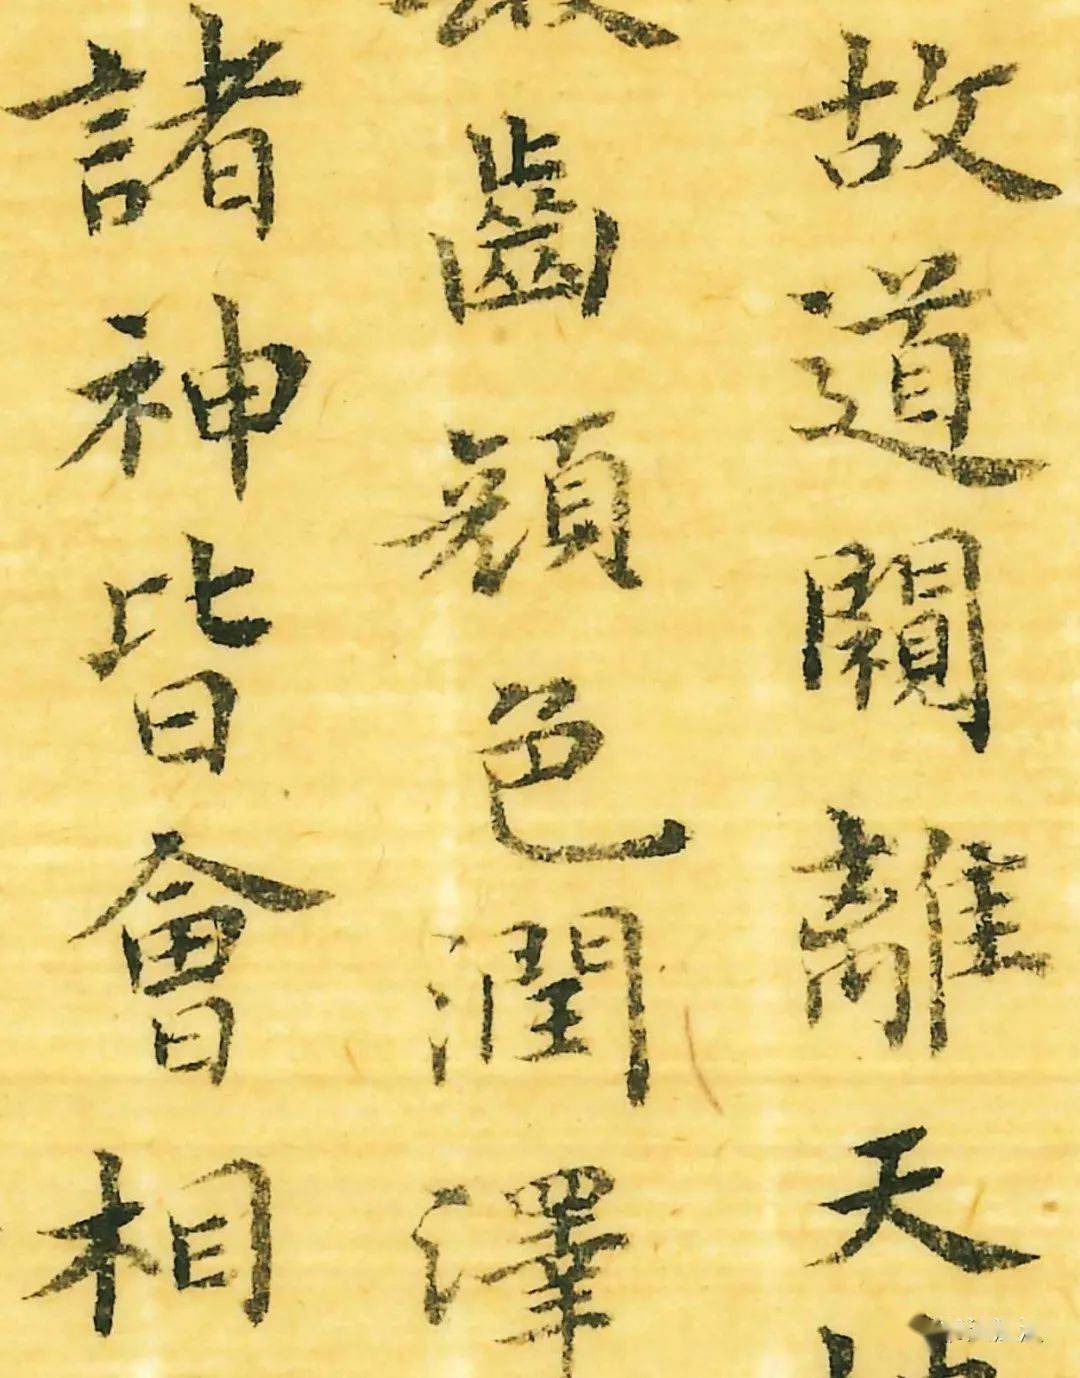 故道離天
齒顔色潤澤
諸神皆會相